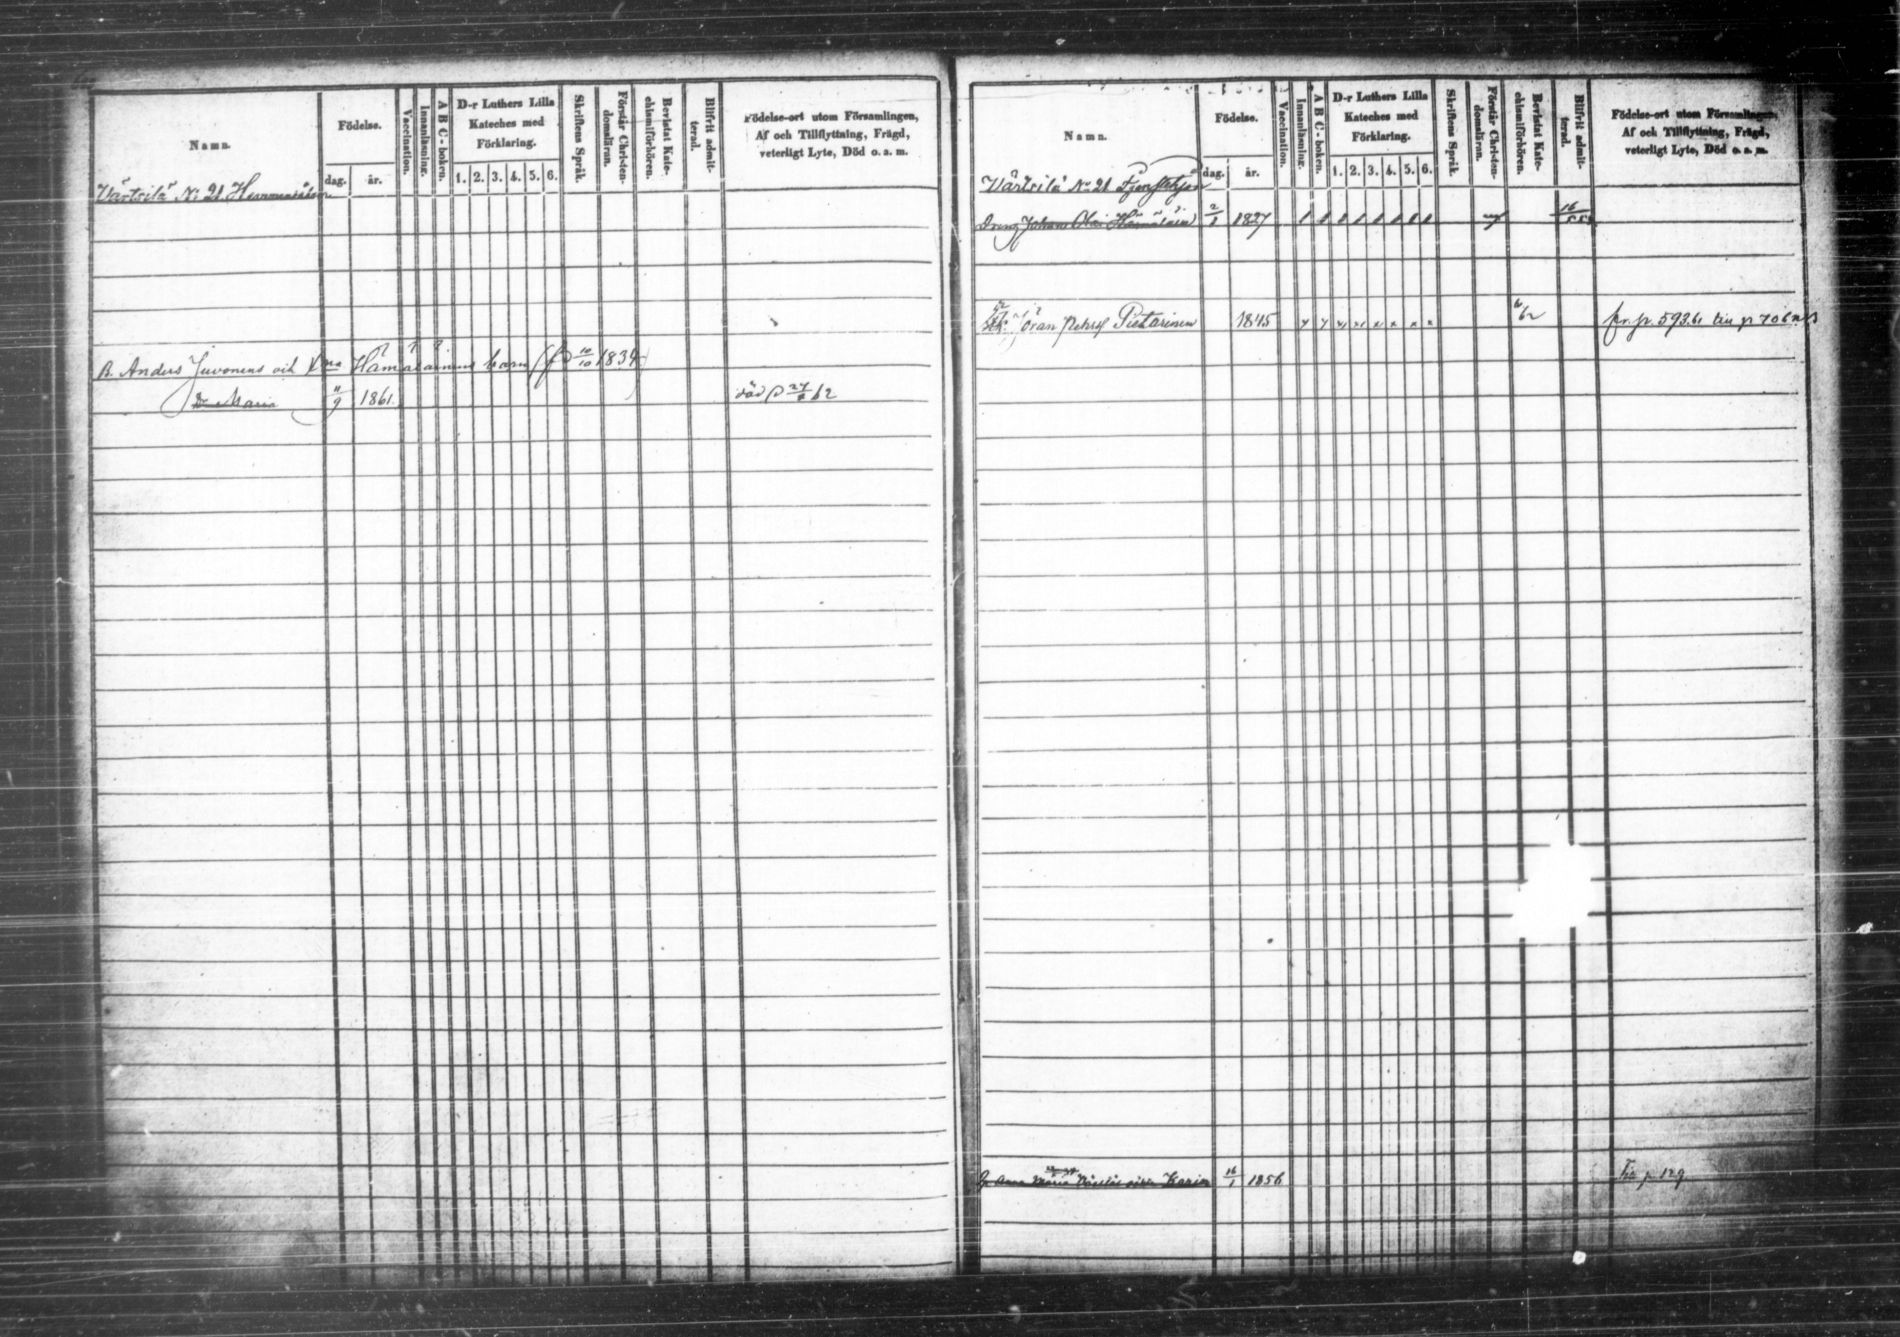 Namn.
Födelse.
dag. år.
Vaccination.
Innanläsning.
A B C-boken.
D-r Luthers Lilla
Kateches med
Förklaring.
1. 2. 3. 4. 5. 6.
Skriftens Språk.
Förstår Christen-
domsläran.
Bevistat Kate-
chismiförhören.
Blifvit admit-
terad.
Födelse-ort utom Församlingen,
Af och Tillflyttning, Frägd,
veterligt Lyte, Död o. a. m.
Värtsilä No 21
B. Anders Juvonens och Hämäläinens barn (10/10 1834)
Dr Maria 11/9 1861 död 27/ 62
Namn.
Födelse.
dag. år.
Vaccination.
Innanläsning.
A B C-boken.
D-r Luthers Lilla
Kateches med
Förklaring.
1. 2. 3. 4. 5. 6.
Skriftens Språk.
Förstår Christen-
domsläran.
Bevistat Kate-
chismiförhören.
Blifvit admit-
terad.
Födelse-ort utom Församlingen,
Af och Tillflyttning, Frägd,
veterligt Lyte, Död o. a. m.
Värtsilä No 21
Dreng Johan Hämäläinen 2/1 1827
Göran Pehrs Pietarinen 1845 fr. p. 593.61 till p 706
Anna Maria Karin 16/1 1856 p. 129